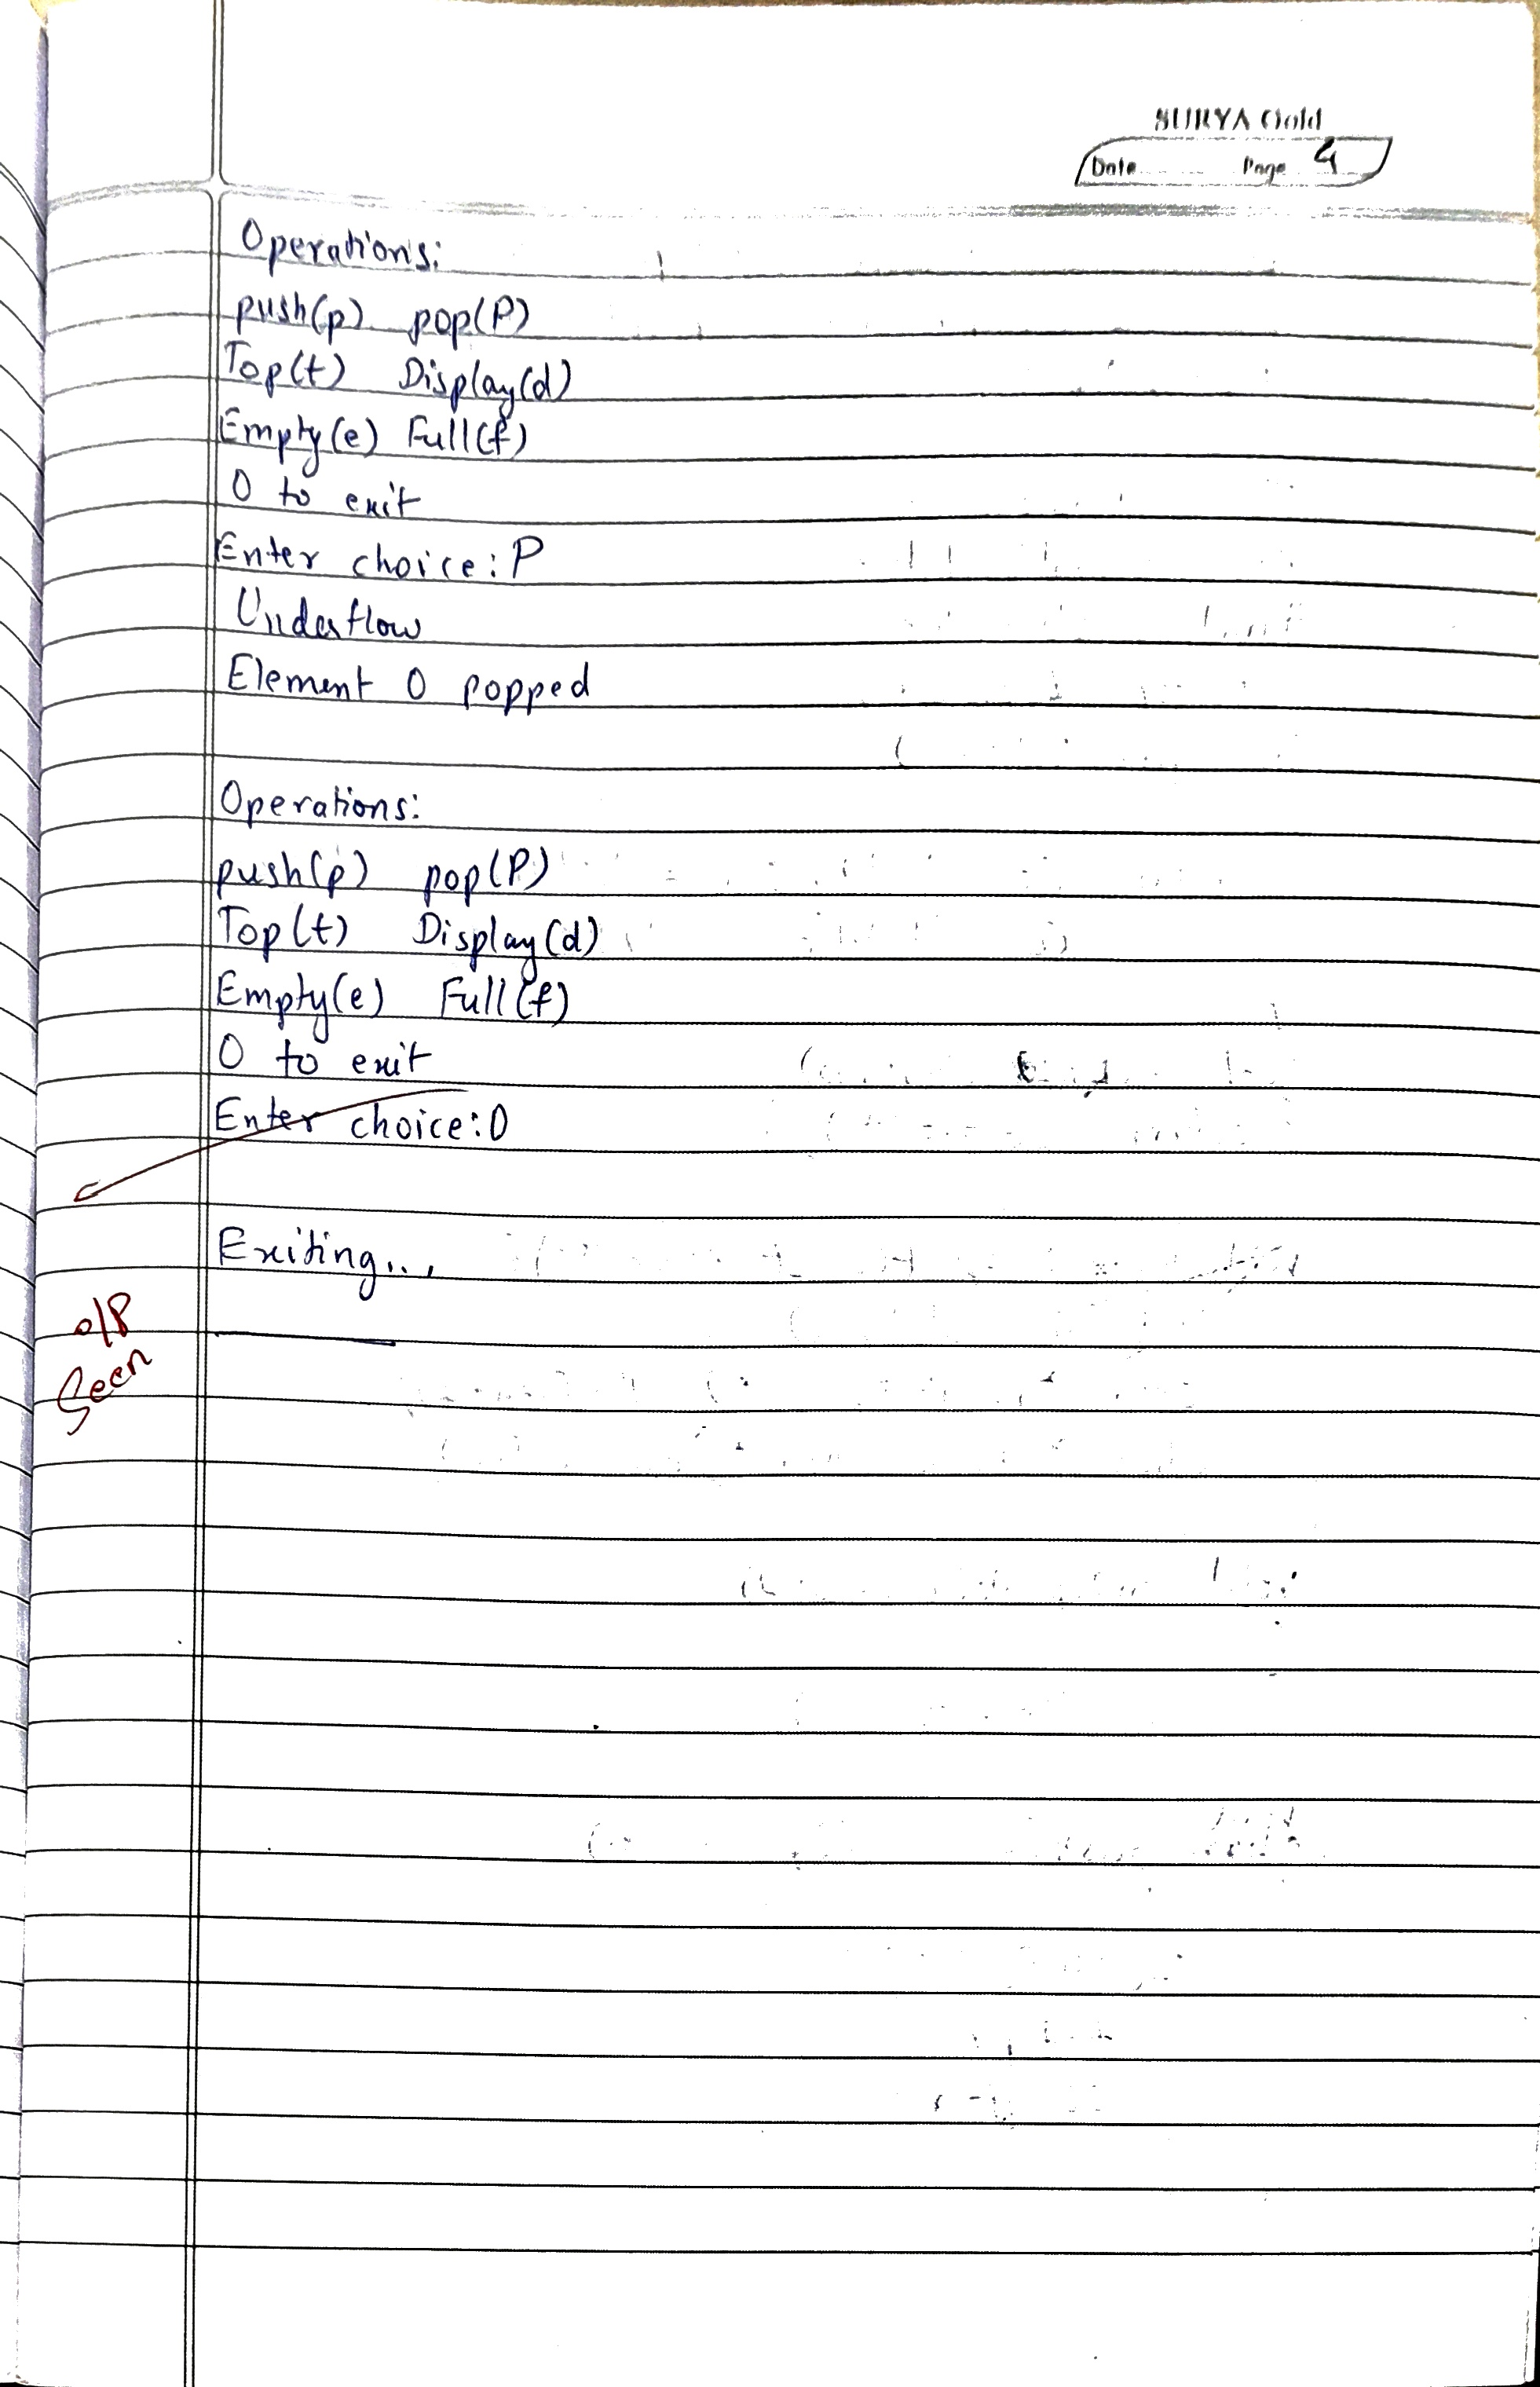 SURYA Gold
Date Page 4
Operations:
push(p) pop(P)
Top(t) Display(d)
Empty(e) Full(f)
0 to exit
Enter choice: P
Underflow
Element 0 popped
Operations:
push(p) pop(P)
Top(t) Display(d)
Empty(e) Full(f)
0 to exit
Enter choice: 0
Exiting...
o/p
Seen